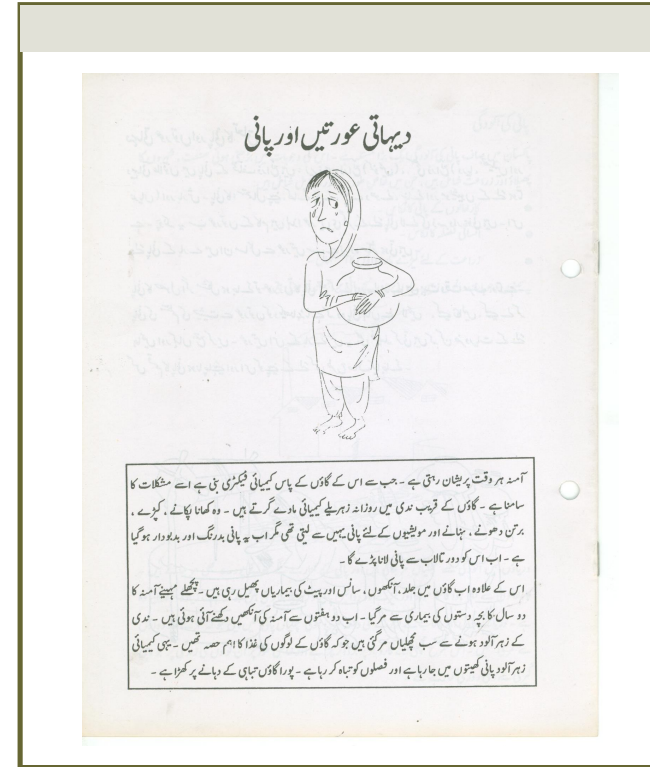 دیہاتی عورتیں اور پانی
آمنہ ہر وقت پریشان رہتی ہے ۔ جب سے اس کے گاؤں کے پاس کیمیائی فیکٹری بنی ہے اسے مشکلات کا
سامنا ہے ۔ گاؤں کے قریب ندی میں روزانہ زہریلے کیمیائی مادے گرتے ہیں ۔ وہ کھانا پکانے ، کپڑے ،
برتن دھونے ، نہانے اور مویشیوں کے لئے پانی یہیں سے لیتی تھی مگر اب یہ پانی بدرنگ اور بدبودار ہو گیا
ہے ۔ اب اس کو دور تالاب سے پانی لانا پڑے گا ۔
اس کے علاوہ اب گاؤں میں جلد ، آنکھوں ، سانس اور پیٹ کی بیماریاں پھیل رہی ہیں ۔ پچھلے مہینے آمنہ کا
دو سال کا بچہ دستوں کی بیماری سے مر گیا ۔ اب دو ہفتوں سے آمنہ کی آنکھیں دکھنے آئی ہوئی ہیں ۔ ندی
کے زہر آلود ہونے سے سب مچھلیاں مر گئی ہیں جو کہ گاؤں کے لوگوں کی غذا کا اہم حصہ تھیں ۔ یہی کیمیائی
زہر آلود پانی کھیتوں میں جا رہا ہے اور فصلوں کو تباہ کر رہا ہے ۔ پورا گاؤں تباہی کے دہانے پر کھڑا ہے ۔